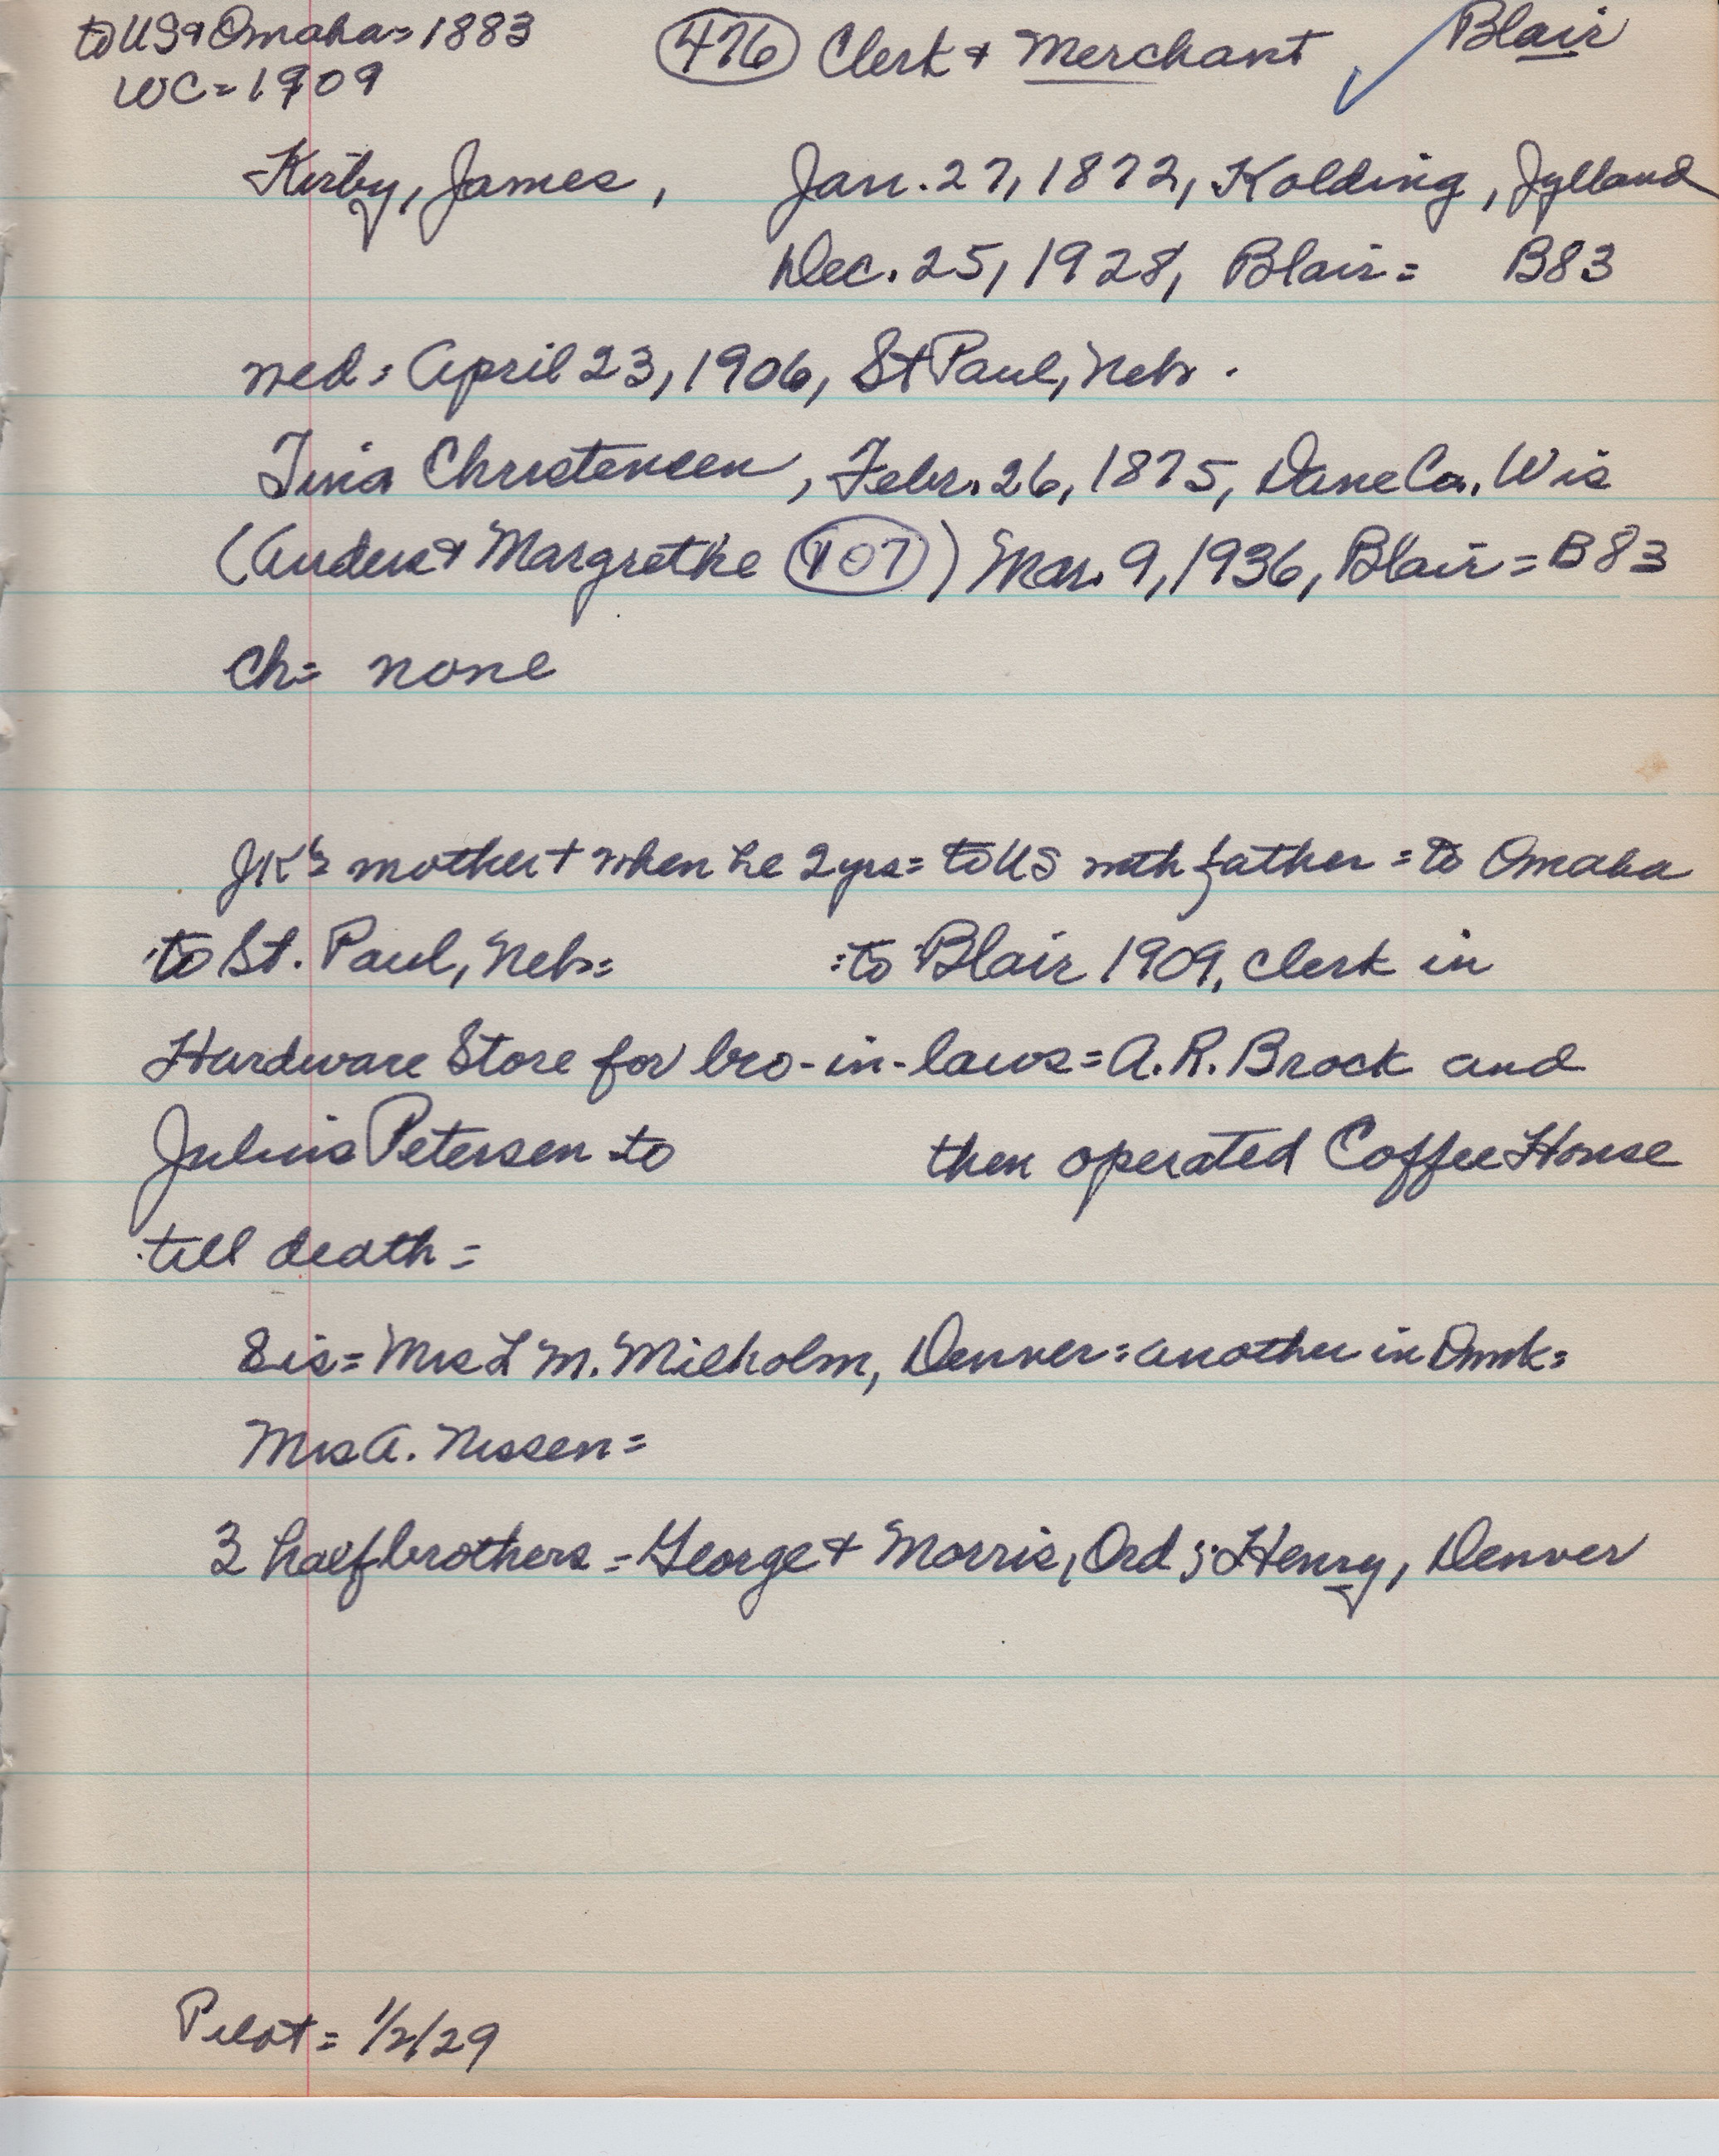 to US & Omaha = 1883
WC = 1909
476 Clerk + Merchant Blair
Kirby, James, Jan. 27, 1872, Kolding, Jylland
Dec. 25, 1928, Blair = B83
wed = April 23, 1906, St Paul, Nebr.
Tina Christensen, Febr. 26, 1875, Dane Co., Wis
(Anders & Margrethe 107) Mar. 9, 1936, Blair = B83
Ch = none
JK's mother + when he 2 yrs = to US with father = to Omaha
to St. Paul, Nebr = : to Blair 1909, clerk in
Hardware Store for bro-in-laws = A.R. Brock and
Julius Petersen to then operated Coffee House
till death =
Sis = Mrs L M. Milholm, Denver = another in Dmk =
Mrs A. Nissen =
3 half brothers = George + Morris, Ord ; Henry, Denver
Pilot = 1/2/29